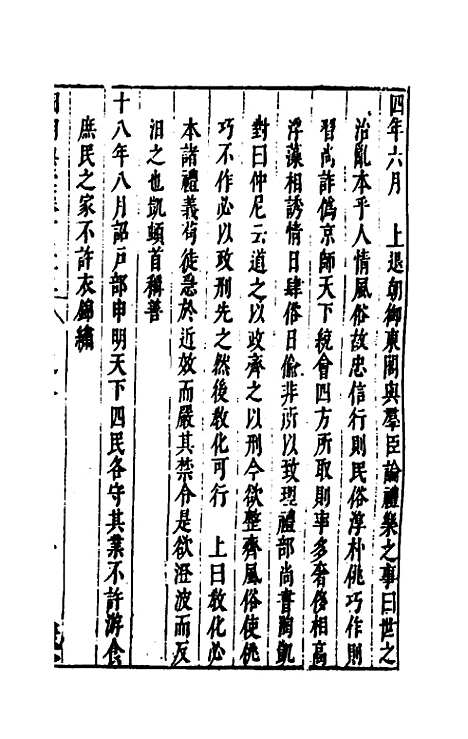 四年六月　上退朝御東閣與羣臣論禮樂之事曰世之
治亂本乎人情風俗故忠信行則民俗淳朴佻巧作則
習尚詐僞京師天下統會四方所取則事多奢侈相高
浮藻相誘情日肆俗日偷非所以致理禮部尚書陶凱
對曰仲尼云道之以政齊之以刑今欲整齊風俗使佻
巧不作必以政刑先之然後敎化可行　上曰敎化必
本諸禮義茍徒急於近效而嚴其禁令是欲澄波而反
汨之也凱頓首稱善
十八年八月詔戶部申明天下四民各守其業不許游食
庶民之家不許衣錦繡